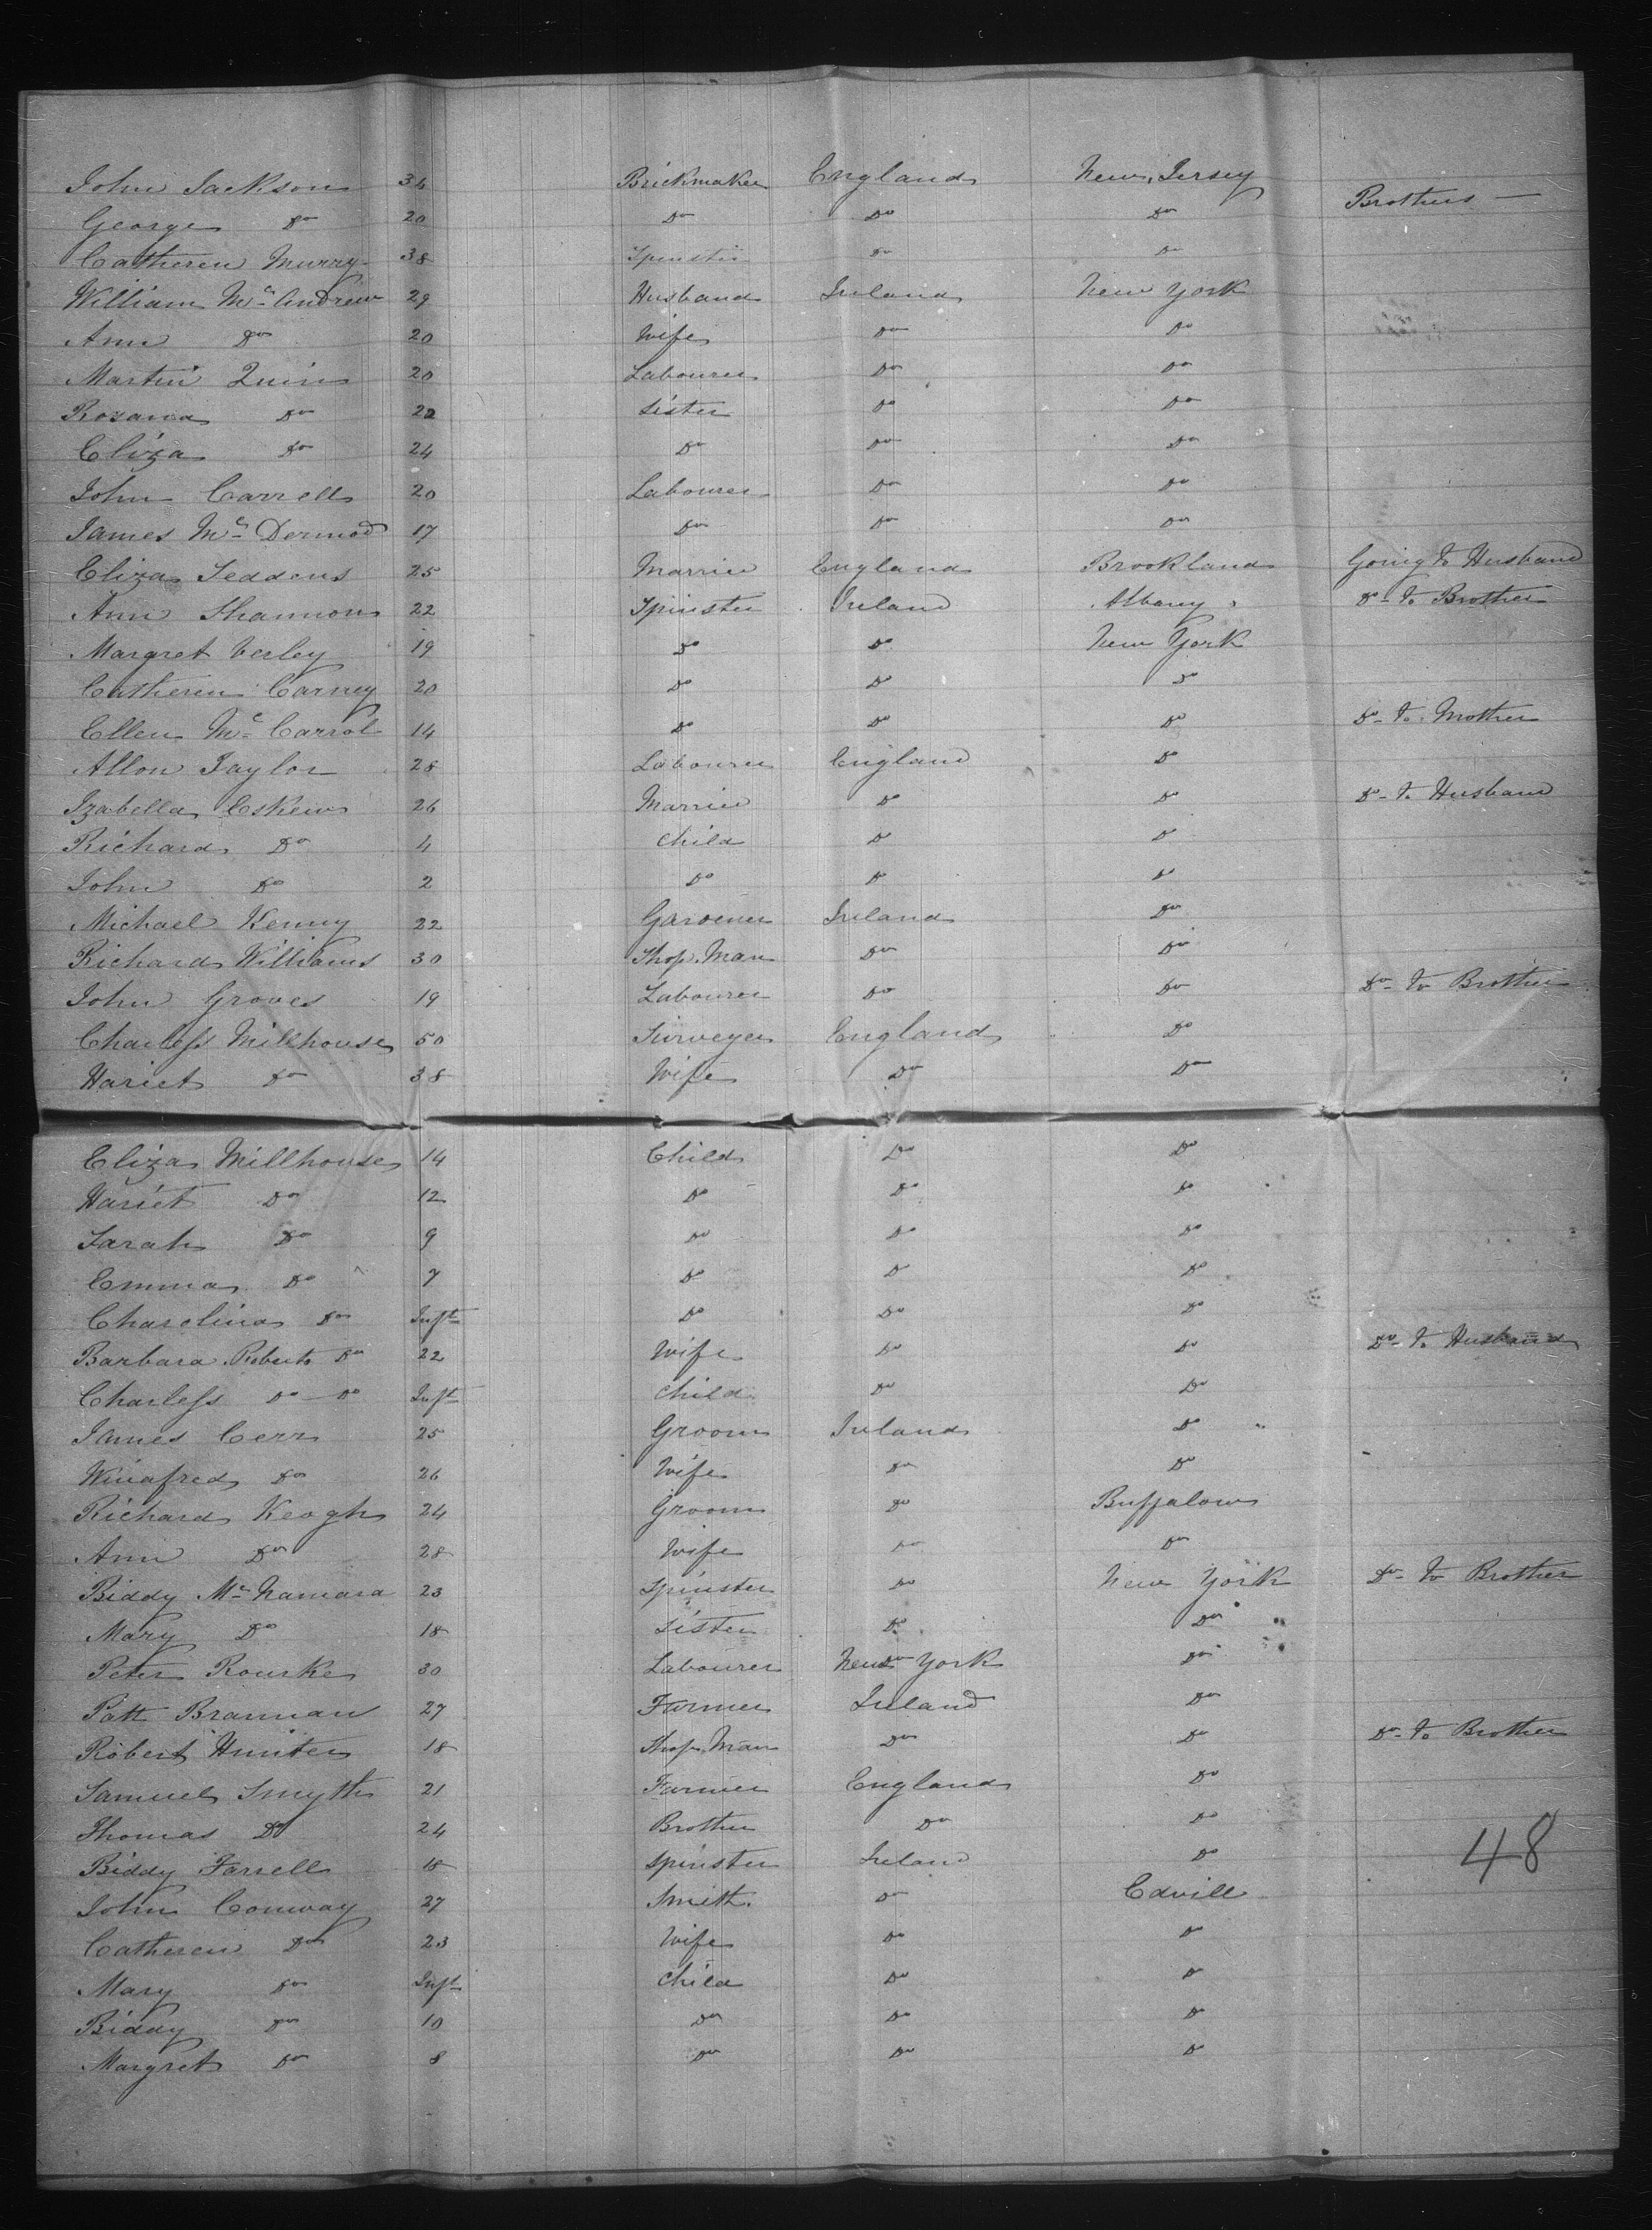 John Jackson 34 Brickmaker England New Jersey
George Do 20 Do Do Do Brothers —
Catheren Murry 38 Spinster Do Do
William Mc Andrew 29 Husband Ireland New York
Ann Do 20 Wife Do Do
Martin Quin 20 Labourer Do Do
Rozana Do 22 Sister Do Do
Eliza Do 24 Do Do Do
John Carrell 20 Labourer Do Do
James Mc Dermod 17 Do Do Do
Eliza Seddens 25 Married England Brookland Going to Husband
Ann Shannon 22 Spinster Ireland Albany Do to Brother
Margret Verley 19 Do Do New York
Catheren Carney 20 Do Do Do
Ellen Mc Carrol 14 Do Do Do Do to Mother
Allon Taylor 28 Labourer England Do
Izabella Eskew 26 Married Do Do Do to Husband
Richard Do 4 Child Do Do
John Do 2 Do Do Do
Michael Kenny 22 Gardener Ireland Do
Richard Williams 30 Shop Man Do Do
John Groves 19 Labourer Do Do Do to Brother
Charless Millhouse 50 Surveyer England Do
Hariet Do 38 Wife Do Do
Eliza Millhouse 14 Child Do Do
Hariet Do 12 Do Do Do
Sarah Do 9 Do Do Do
Emma Do 7 Do Do Do
Charolina Do Inft Do Do Do
Barbara Roberts Do 22 Wife Do Do Do to Husband
Charless Do Do Inft Child Do Do
James Cerr 25 Groom Ireland Do
Winafred Do 26 Wife Do Do
Richard Keogh 24 Groom Do Buffalow
Ann Do 28 Wife Do Do
Biddy Mc Namara 23 Spinster Do New York Do to Brother
Mary Do 18 Sister Do Do
Peter Rourke 30 Labourer New York Do
Patt Brannan 27 Farmer Ireland Do
Robert Hunter 18 Shop Man Do Do Do to Brother
Samuel Smyth 21 Farmer England Do
Thomas Do 24 Brother Do Do
Biddy Farrell 18 Spinster Ireland Do
48
John Conway 27 Smith Do Edvill
Catheren Do 23 Wife Do Do
Mary Do Inft Child Do Do
Biddy Do 10 Do Do Do
Margret Do 8 Do Do Do